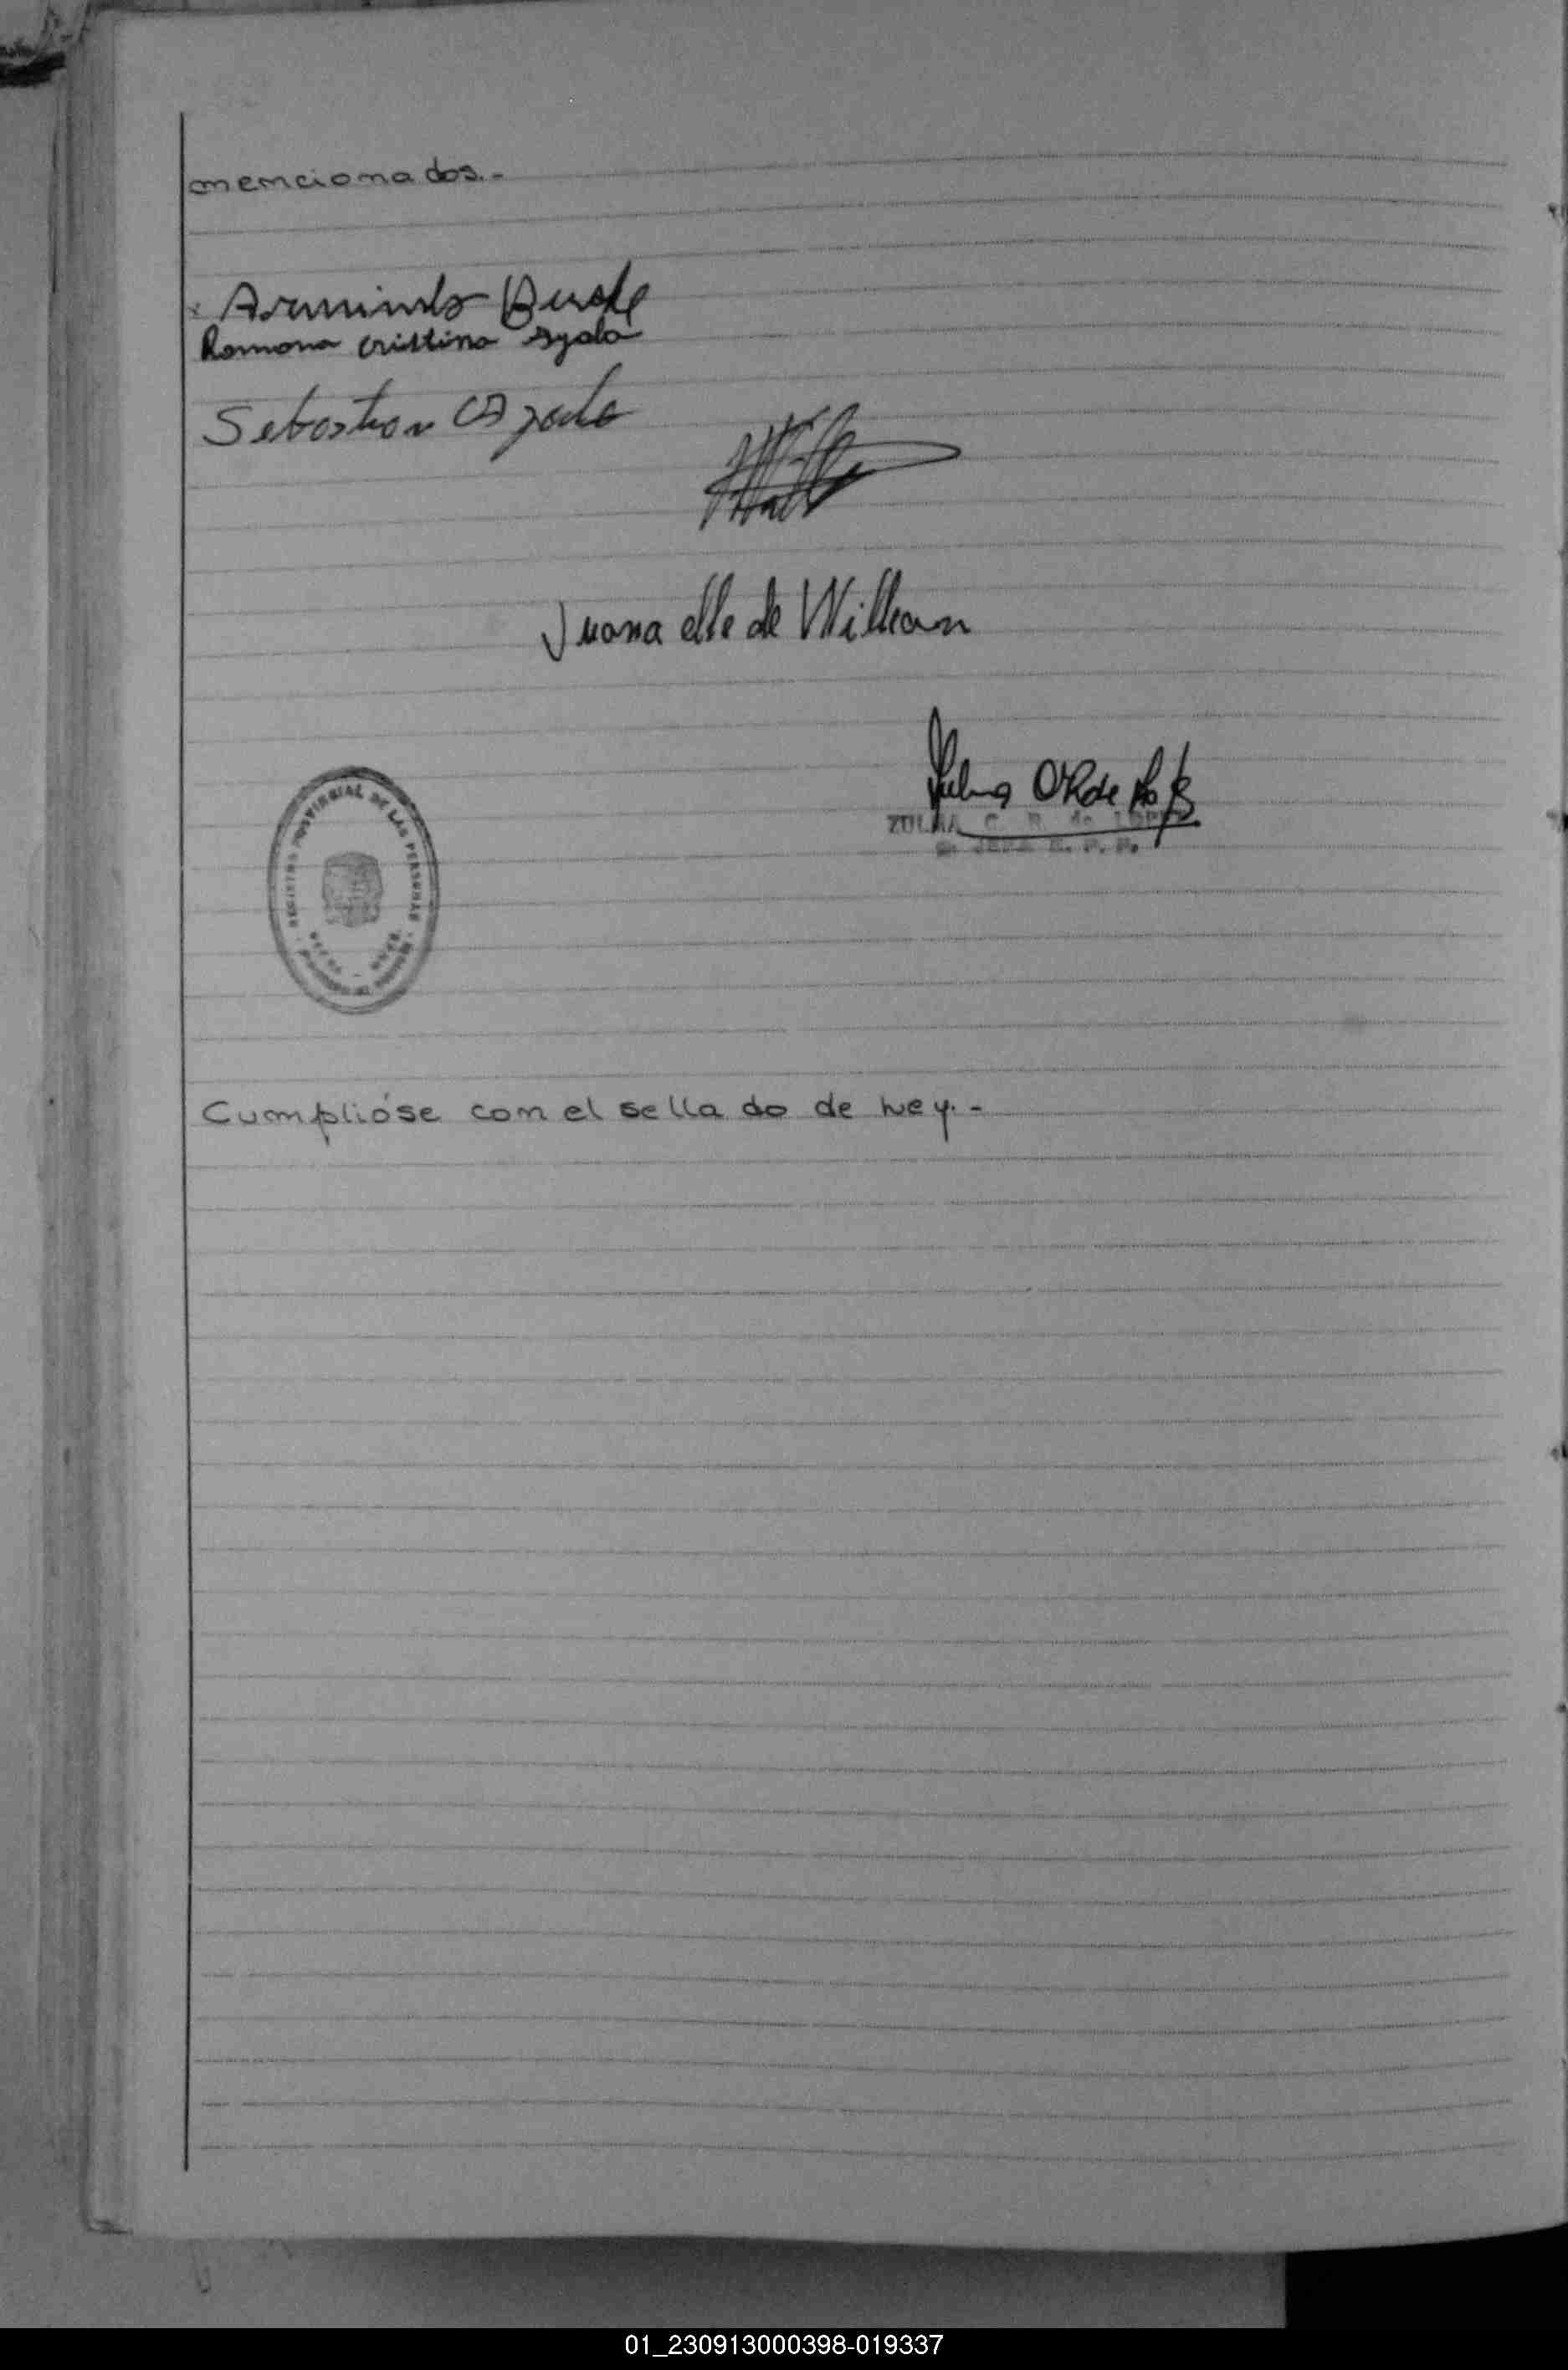 mencionados.-
Arminda
Ramona Cristina Ayala
Sebastian Ayala
Juana de William
ZULMA C. R. de LOPEZ
JEFA R. P. P.
REGISTRO PROVINCIAL DE LAS PERSONAS
Cumplióse con el sellado de Ley.-
01_230913000398-019337